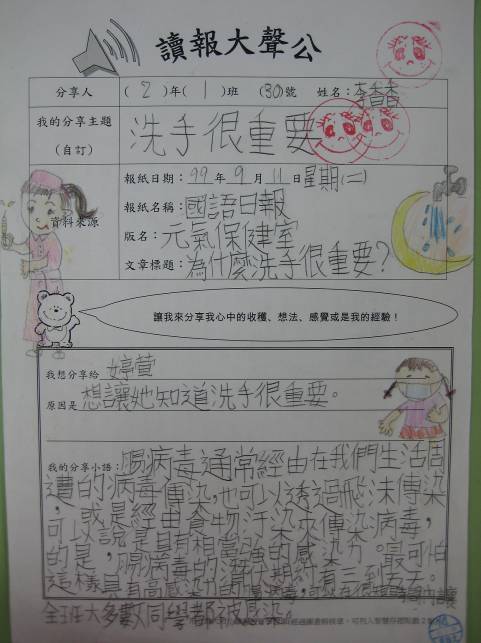 讀報大聲公
分享人 (2)年(1)班 (30)號 姓名:李香香
我的分享主題 洗手很重要
(自訂)
報紙日期:99年9月11日星期(二)
資料來源 報紙名稱:國語日報
版名:元氣保健室
文章標題:為什麼洗手很重要?
讓我來分享我心中的收穫、想法、感覺或是我的經驗!
我想分享給 婷萱
原因是 想讓她知道洗手很重要。
我的分享小語:腸病毒通常經由在我們生活周
遭的病毒傳染,也可以透過飛沫傳染
,或是經由食物汙染來傳染病毒,
可以說是具有相當強的感染力。最可怕
的是,腸病毒的潛伏期約有三到五天。
這樣具有高感染力的腸病毒,可以在很短時間內讓
全班大多數同學都被感染。